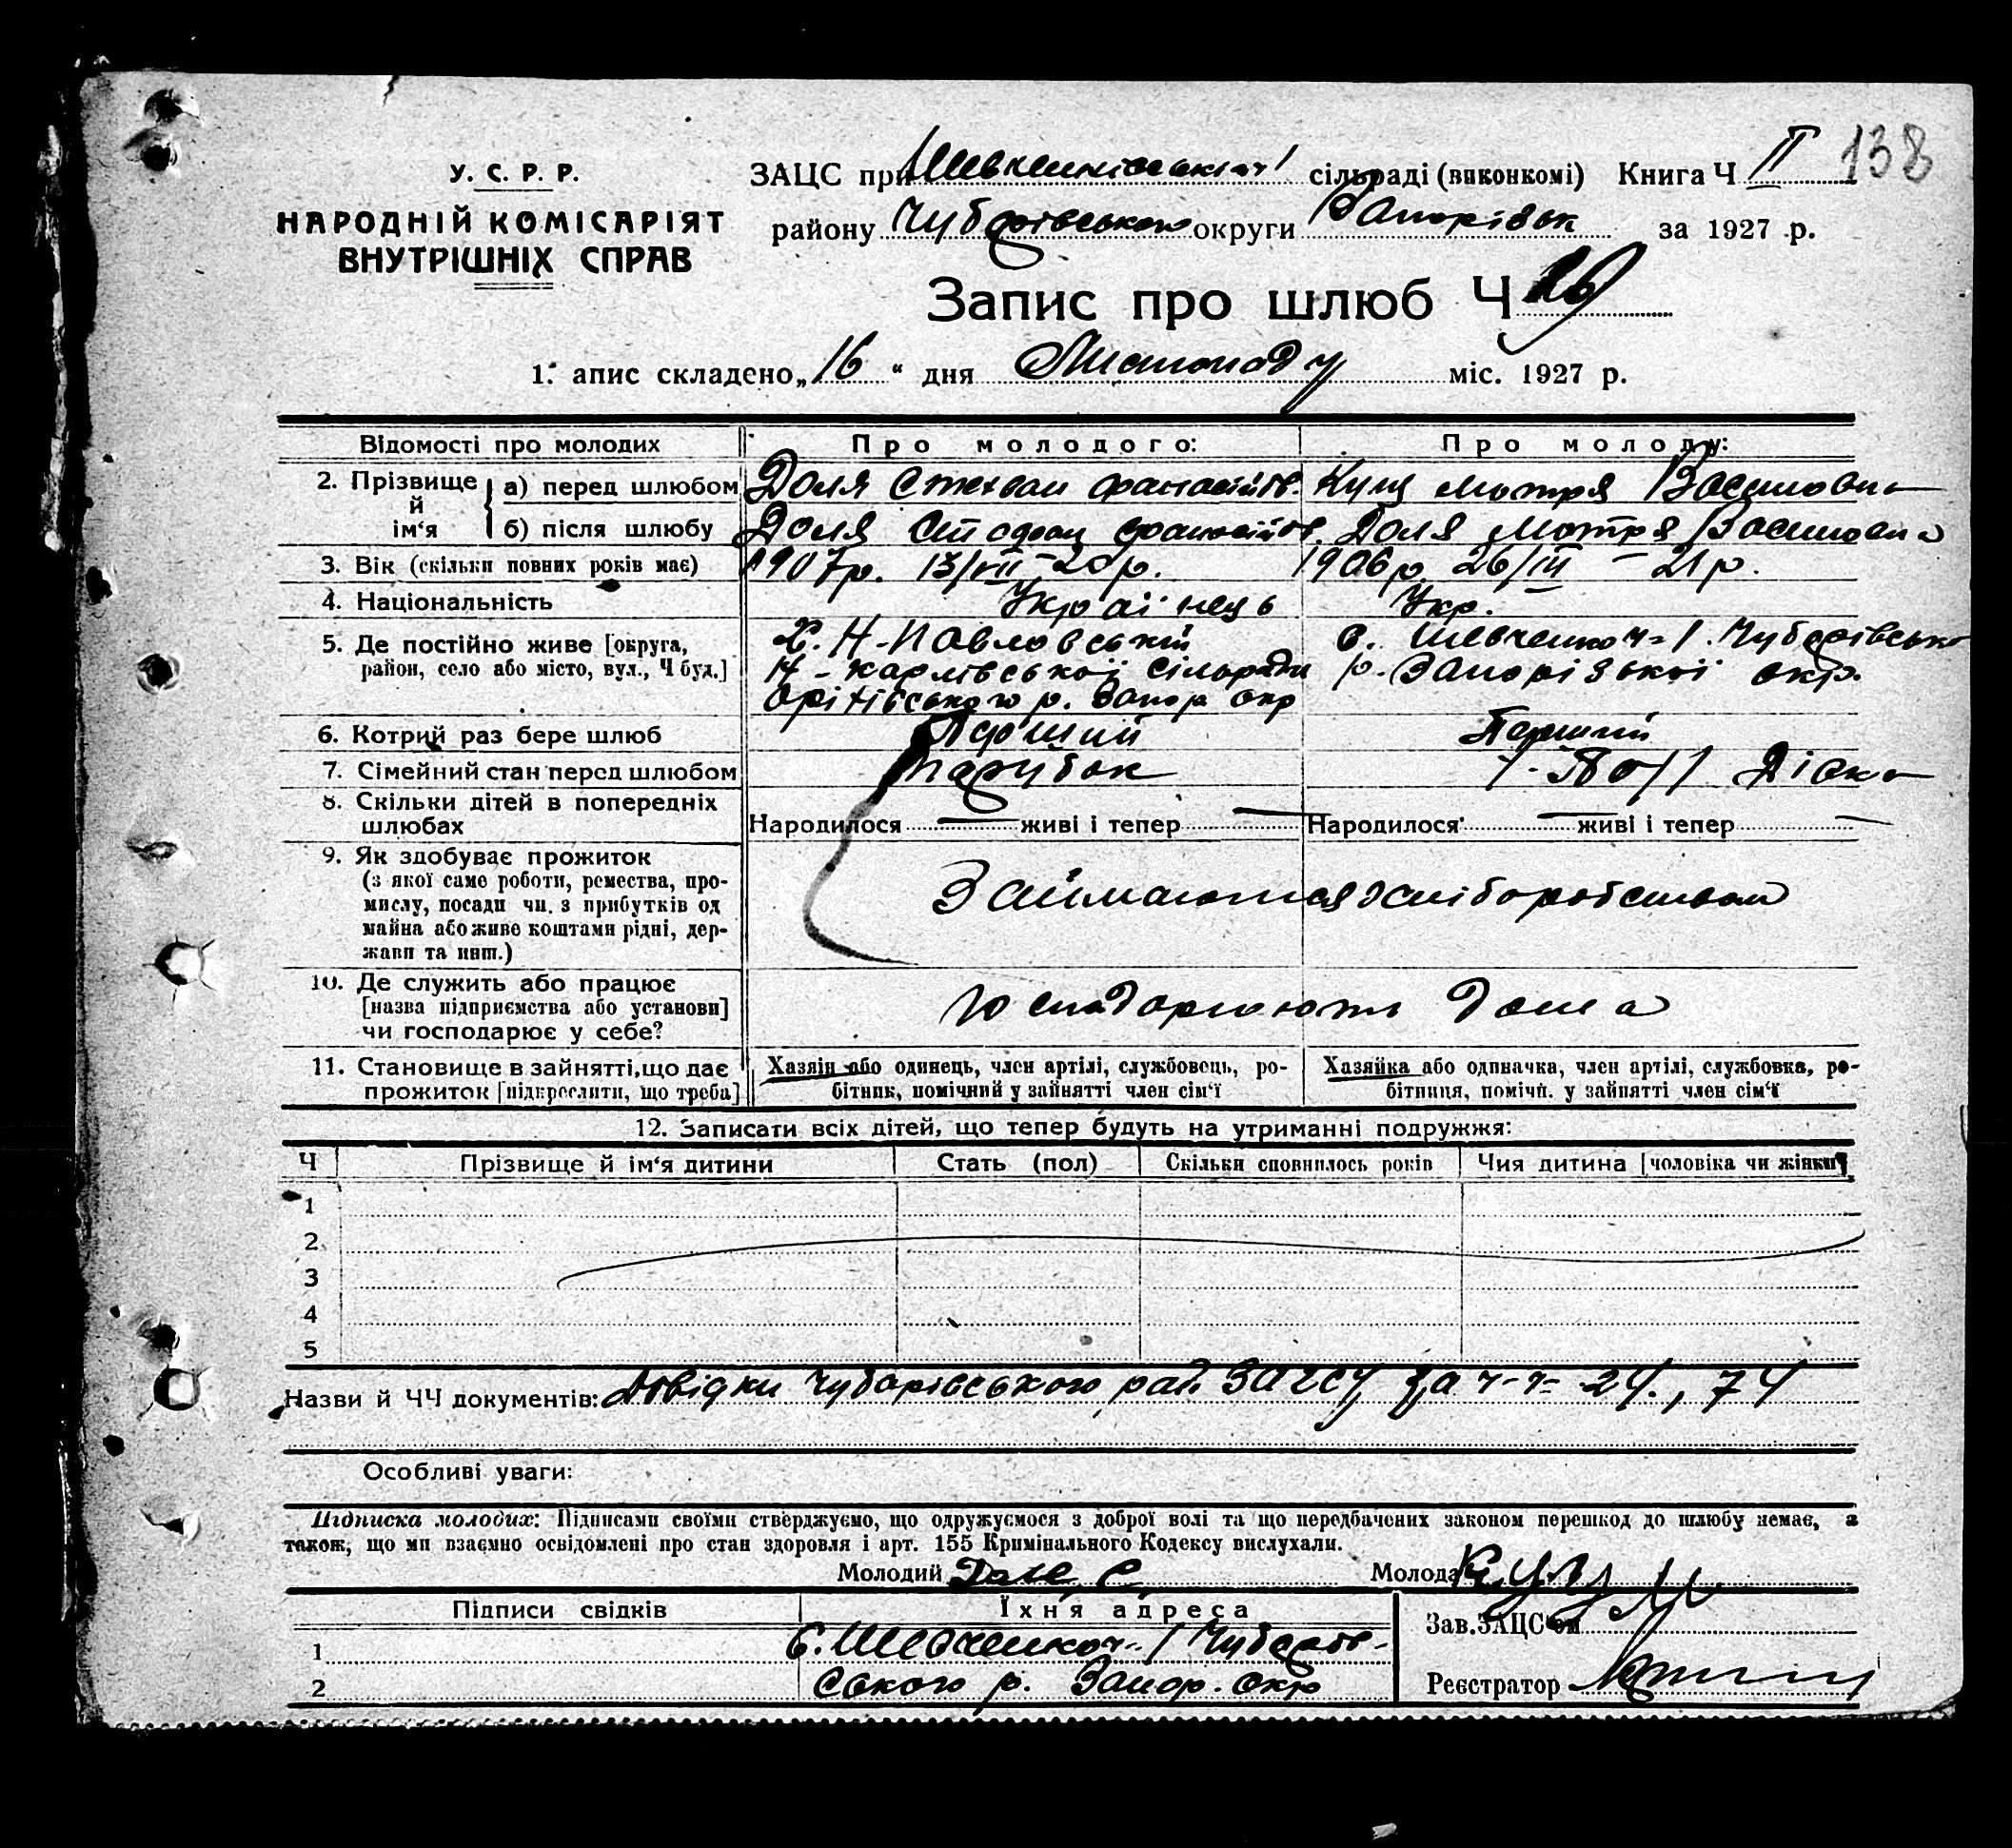 138
У. С. Р. Р.
НАРОДНІЙ КОМІСАРІЯТ
ВНУТРІШНІХ СПРАВ
ЗАЦС при сільраді (виконкомі) Книга Ч II
району Чубарівського округи Запорізьк за 1927 р.
Запис про шлюб Ч
1. апис складено „16“ дня Листопаду міс. 1927 р.
Відомості про молодих
Про молодого:
Про молоду:
2. Прізвище й ім‘я
а) перед шлюбом
Доля Стехван
Кущ Мотря Василовна
б) після шлюбу
Доля
Доля Мотря Василовна
3. Вік (скільки повних років має)
1907р. 13/VII – 20р.
1906р. 26/III – 21р.
4. Національність
Українець
Укр.
5. Де постійно живе [округа,
район, село або місто, вул., Ч буд.]
Х. Н-Павловський
Н-Карлівської сільради
Оріхівського р. Запор окр
с. Шевченко ч- 1. Чубарівсько
р. Запорізької окр.
6. Котрий раз бере шлюб
Перший
Перший
7. Сімейний стан перед шлюбом
Парубок
Дівка
8. Скільки дітей в попередніх
шлюбах
Народилося — живі і тепер —
Народилося — живі і тепер —
9. Як здобуває прожиток
(з якої саме роботи, ремества, про-
мислу, посади чи. з прибутків од
майна або живе коштами рідні, дер-
жави та инш.)
Займаються хліборобством
10. Де служить або працює
[назва підприємства або установи]
чи господарює у себе?
дома
11. Становище в зайнятті, що дає
прожиток [підкреслити, що треба]
Хазяїн або одинець, член артілі, службовець, ро-
бітник, помічний у зайнятті член сім‘ї
Хазяйка або одиначка, член артілі, службовка, ро-
бітниця, помічн. у зайнятті член сім‘ї
12. Записати всіх дітей, що тепер будуть на утриманні подружжя:
Ч
Прізвище й ім‘я дитини
Стать (пол)
Скільки сповнилось років
Чия дитина [чоловіка чи жінки]
1
2
3
4
5
Назви й ЧЧ документів: Довідки Чубарівського рай ЗАГСу за ч-ч- 24., 74
Особливі уваги:
Підписка молодих: Підписами своїми стверджуємо, що одружуємося з доброї волі та що передбачених законом перешкод до шлюбу немає, а
також, що ми взаємно освідомлені про стан здоровля і арт. 155 Кримінального Кодексу вислухали.
Молодий
Молода
Підписи свідків
Їхня адреса
1
С. Шевченко ч- 1 Чубарів-
2
ського р. Запор. окр
Зав. ЗАЦС‘ом
Реєстратор